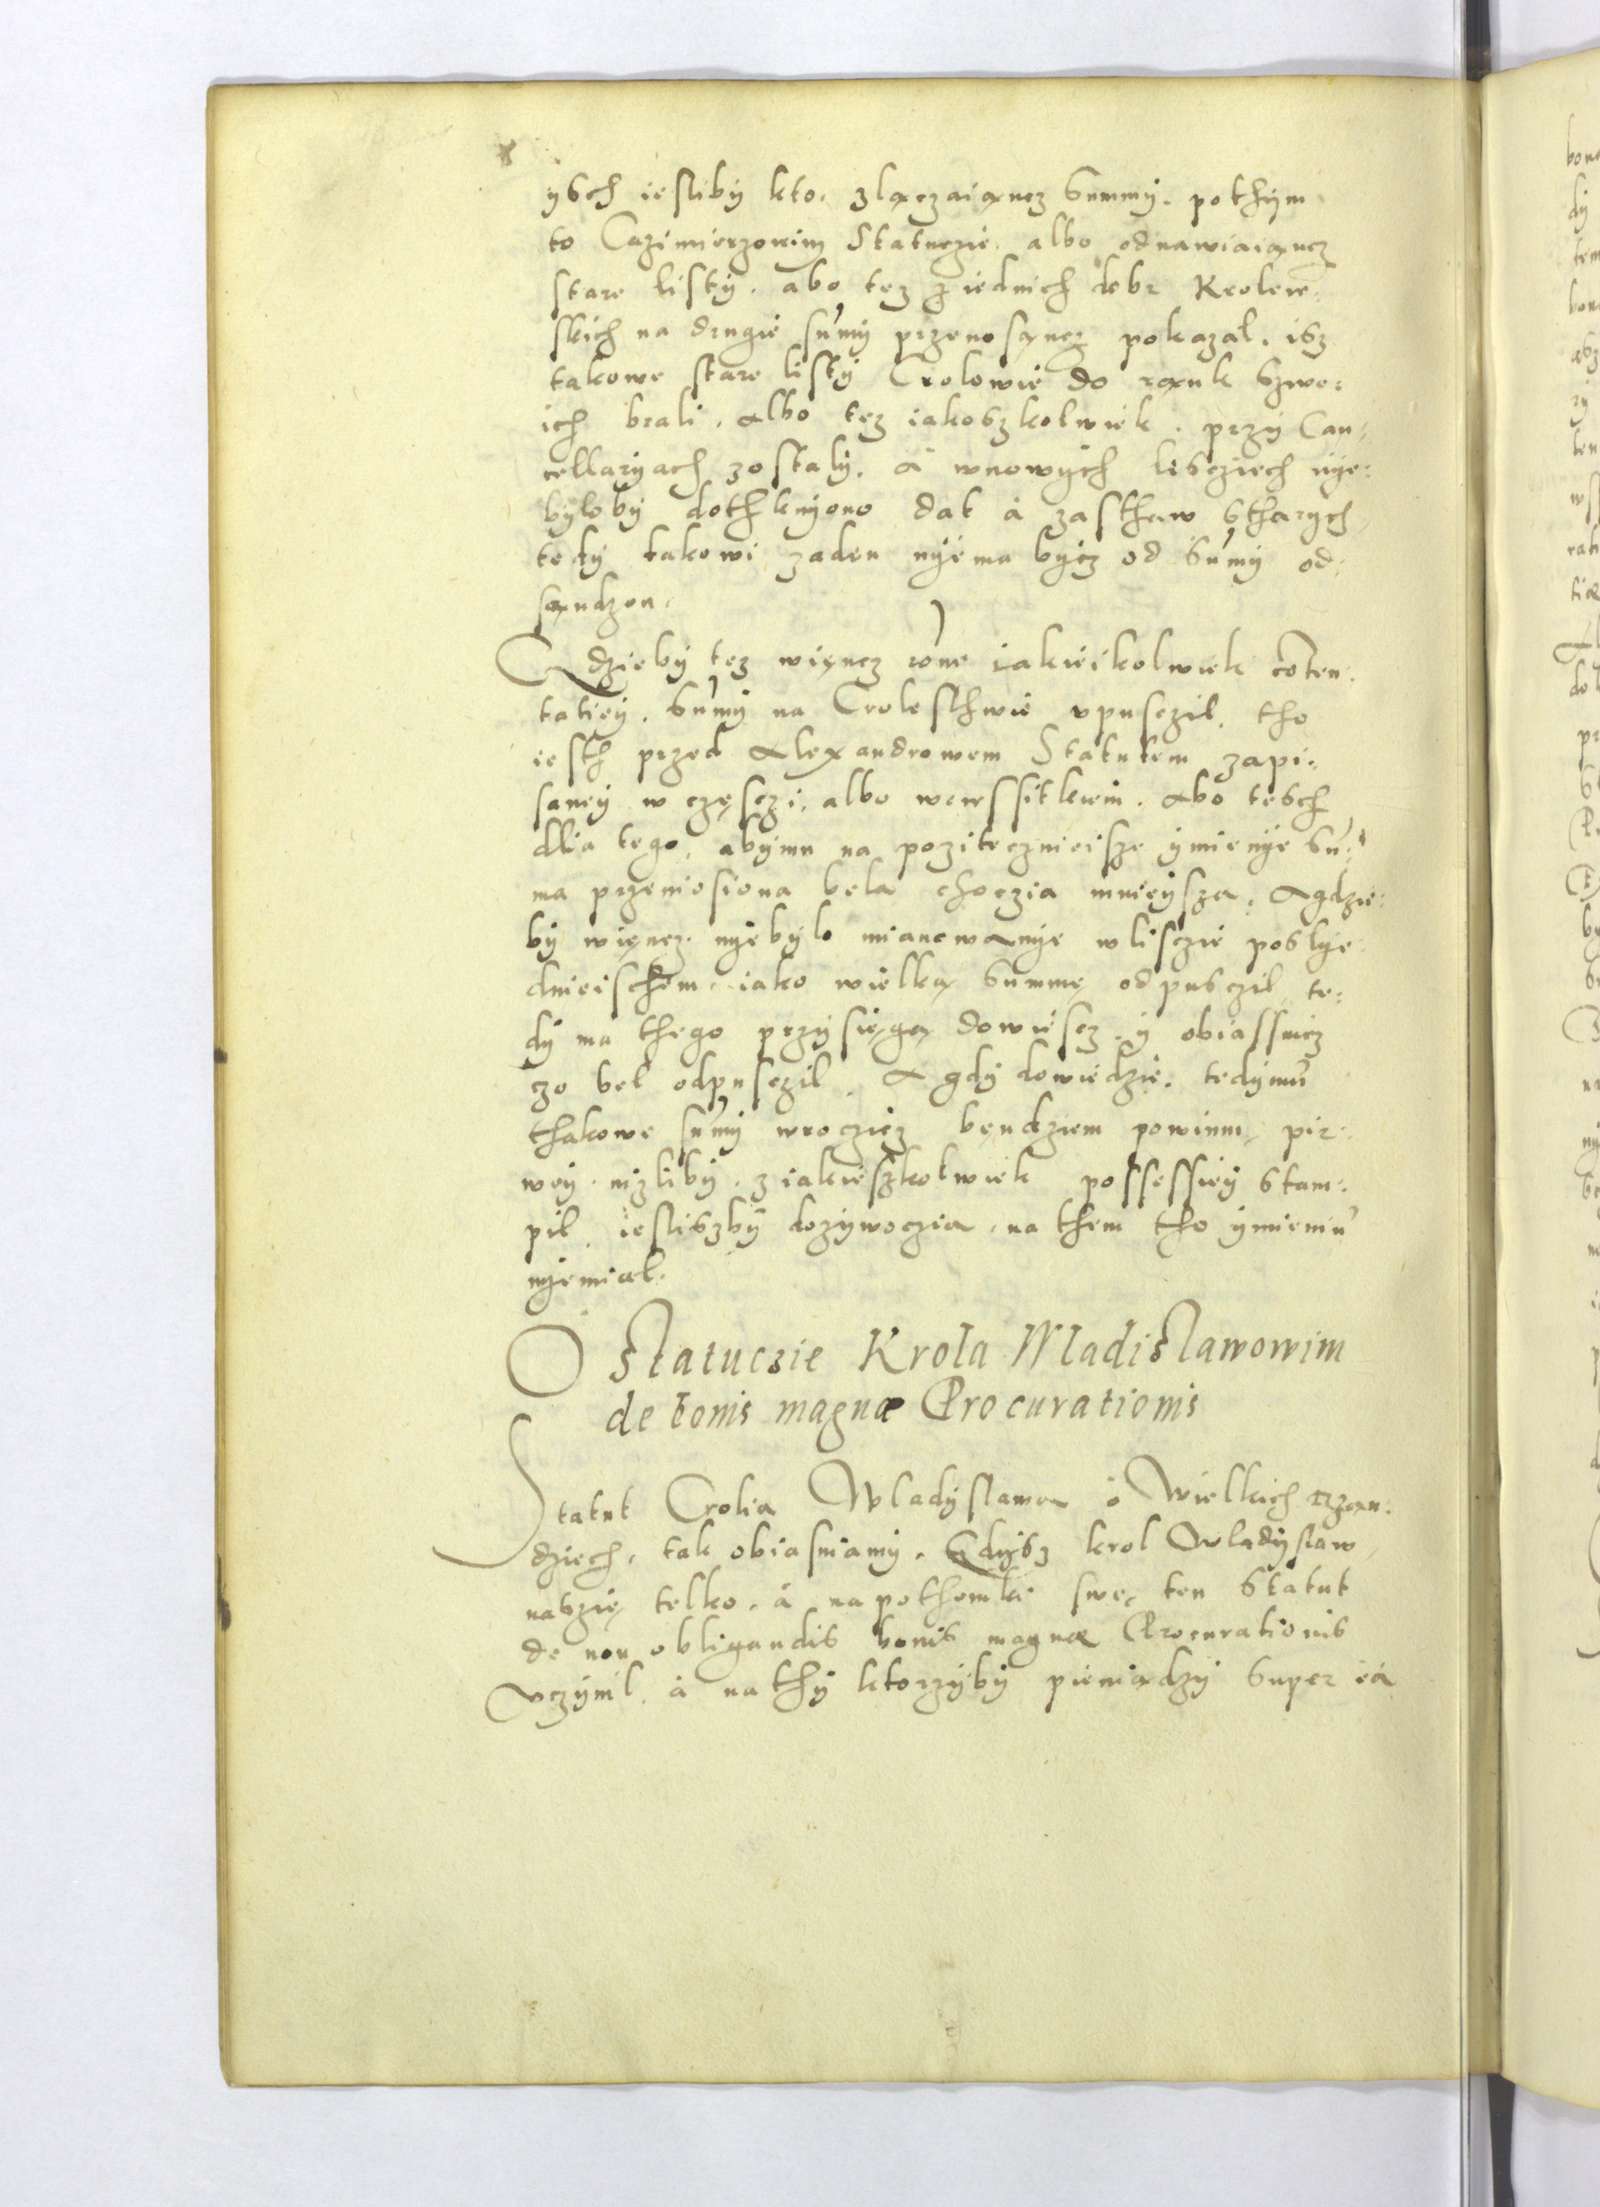 ysch iesliby kto, zlączaiąncz summy. pothym
to Cazimierzowim Statuczie. albo odnawiaiąncz
stare listy. abo tez z iednich dobr Krolew¬
skich na drugie sumy przenosząncz pokazal. isz
takowe stare listy Crolowie do rąnk szwo¬
ich brali. Albo tez iakoszkolwiek. przy Can¬
cellaryach zostaly. á wnowych lisciech nye¬
byloby dothknyono dat á zasthaw stharych
tedy takowi zaden nyema bycz od sumy od¬
sąndzon.
Gdzieby tez więncz rone iakieikolwiek coten¬
tatiey. sumy na Crolesthwie vpusczil. tho
iesth przed Alexandrowem Statutem zapi¬
saney w częsczi, albo wewssitkiem. Abo tesch
dlia tego, abymu na poziteczneisze ymienye su¬
ma przeniosiona bela choczia mnieysza. Agdzie
by więncz nyebylo mianowanye wlisczie poslye
dnieischem. iako wielką summę odpusczil, te¬
dy ma thego przysięgą dowiescz. y obiassnicz
czo bel odpusczil. A gdy dowiedzie. tedymu
thakowe sumy wroczicz bęndziem powinni, pir¬
wey. nizliby. z iakieszkolwiek possessiey stam¬
pil, iesliszby dozywoczia, na them tho ymieniu
nyemial.
O Statuczie Krola Wladislawowim
de bonis magnæ Procurationis
Statut Crolia Wladyslawa o Wielkich rzan¬
dziech, tak obiasniamy. Gdysz krol Wladyslaw
nasię telko, á napothomki swe, ten Statut
de non obligandis bonis magnæ Procurationis
Vczynil, á na thy ktorzyby pieniądzy super ea